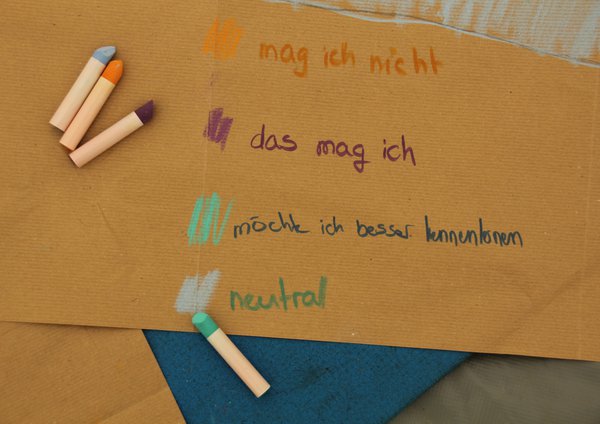 mag ich nicht
das mag ich
möchte ich besser kennenlernen
neutral